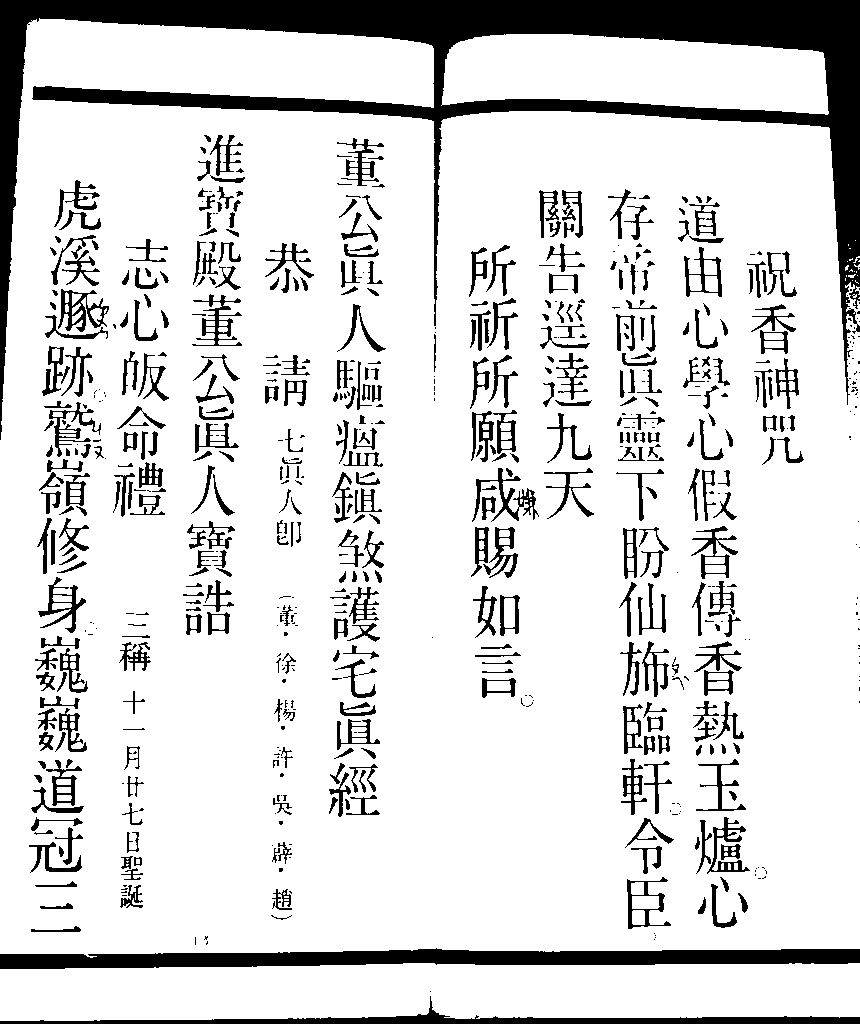 祝香神咒
道由心學心假香傳香熱玉爐。心
存帝前眞靈下盼仙斾臨軒。令臣
關告逕達九天
所祈所願咸賜如言。
董公眞人驅瘟鎭煞護宅眞經
恭請七眞人卽(董·徐·楊·許·吳·薜·趙)
進寶殿董公眞人寶誥
志心皈命禮 三稱 十一月廿七日聖誕
虎溪遯跡。鷲嶺修身。巍巍道冠三